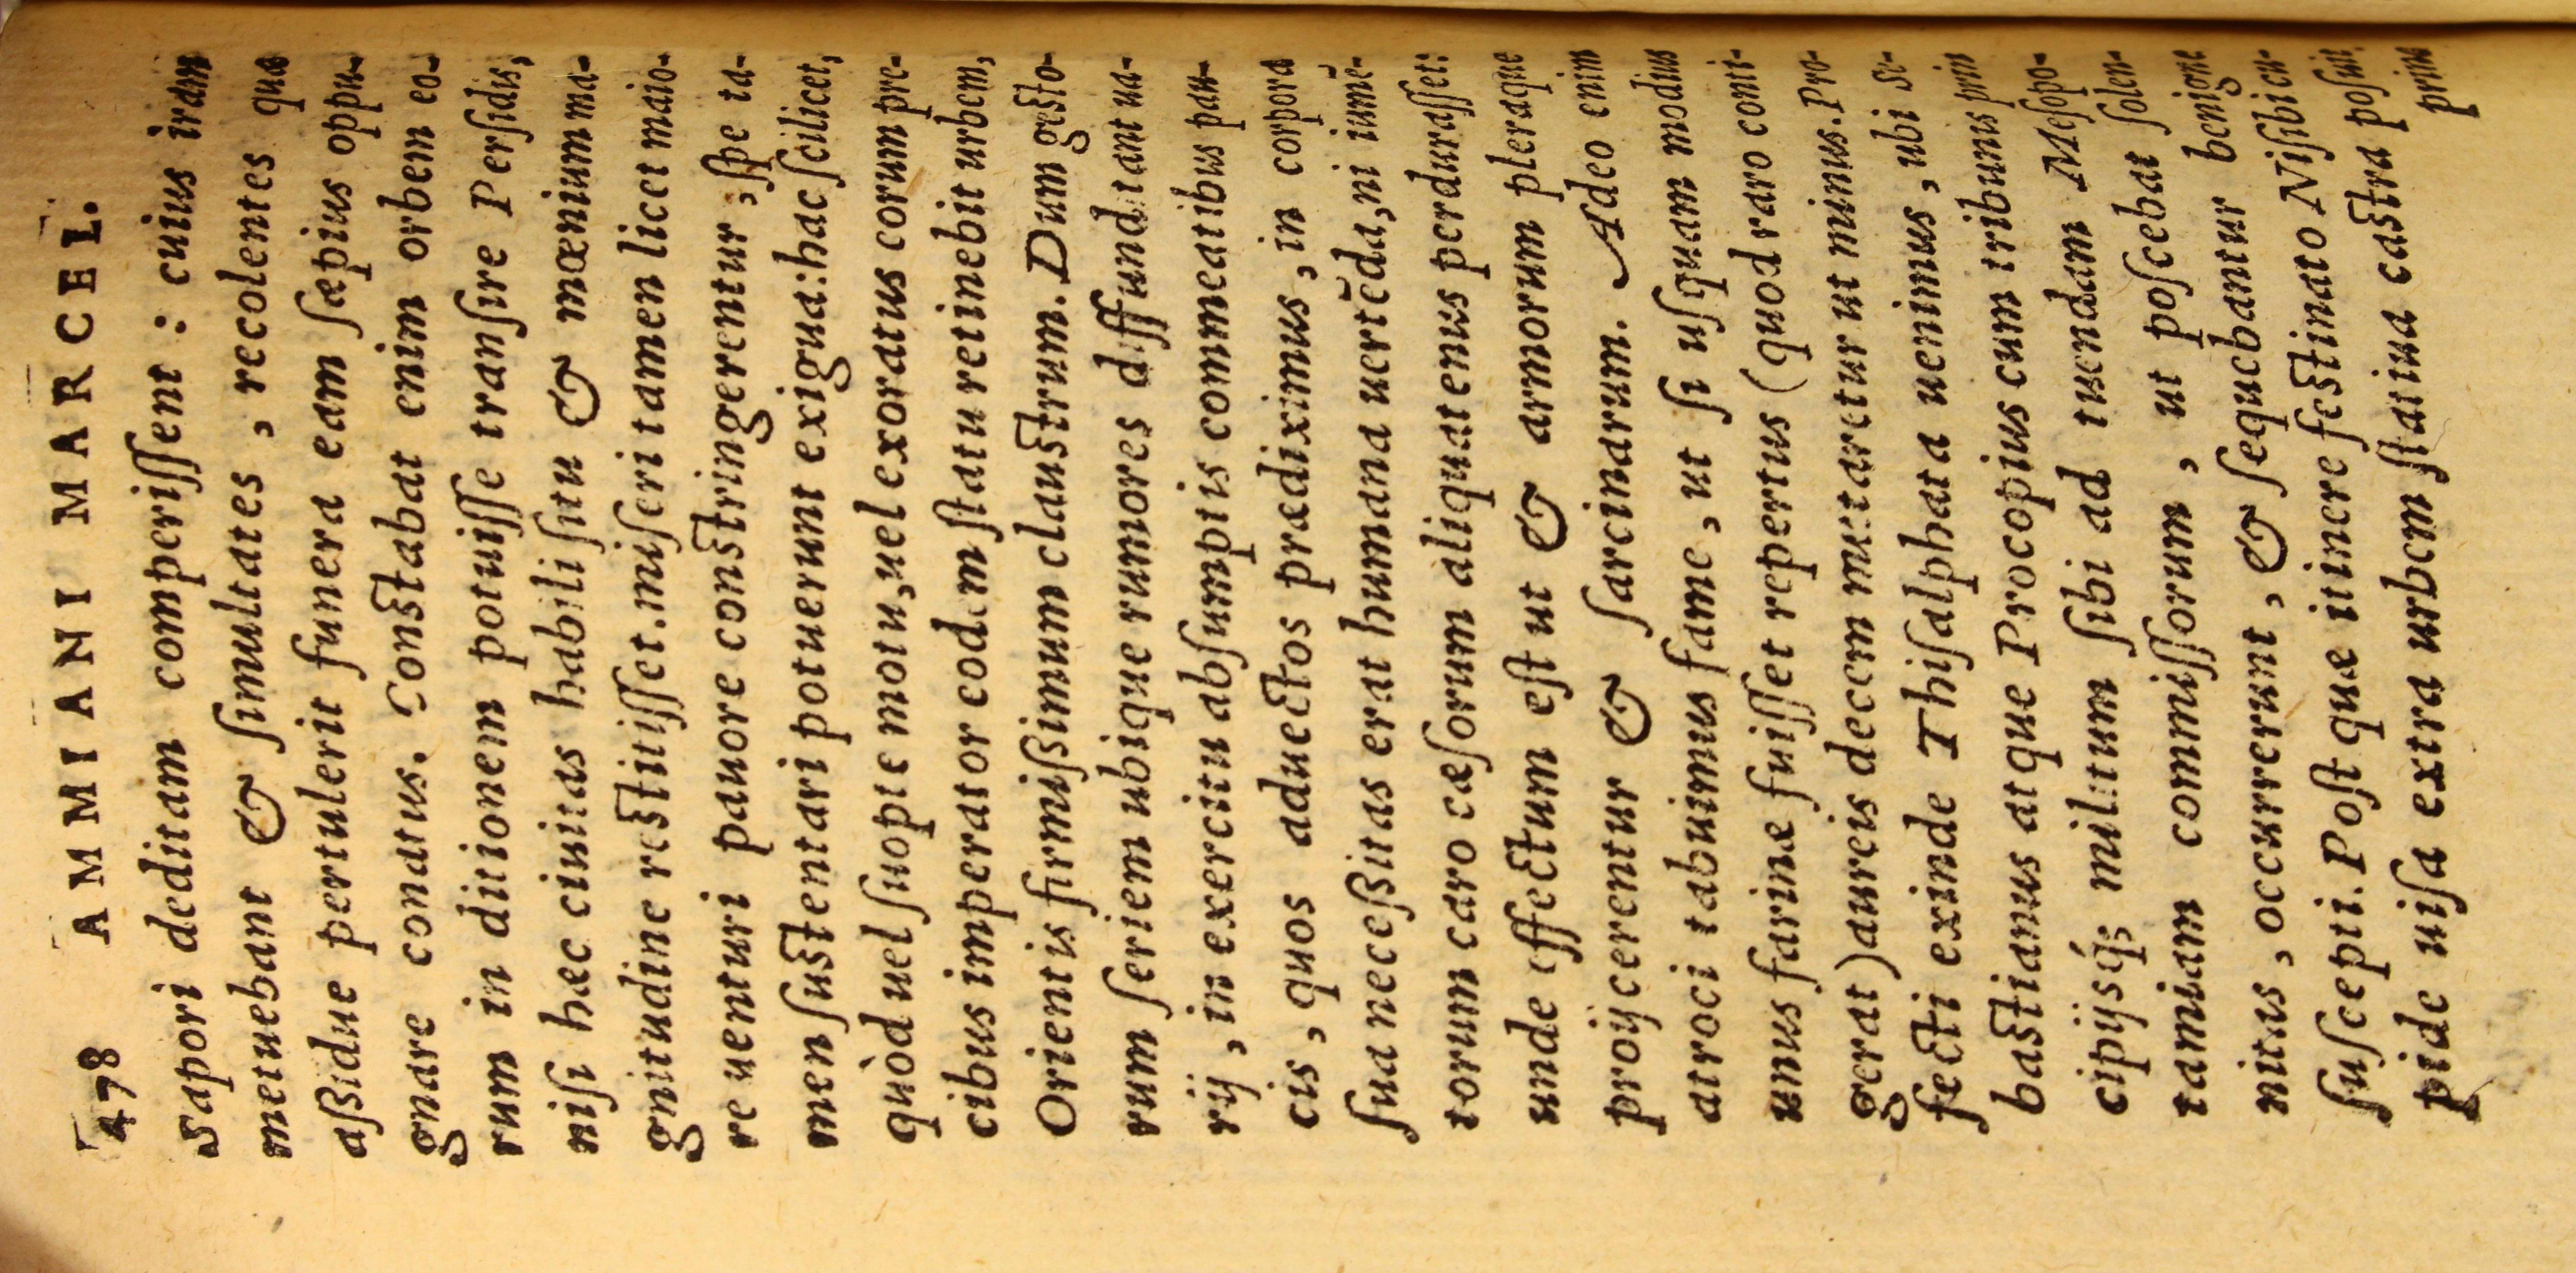 478 AMMIANI MARCEL.
Sapori deditam comperiſſent : cuius iram
metuebant & ſimultates , recolentes quæ
aßidue pertulerit funera eam ſæpius oppu-
gnare conatus. Constabat enim orbem eo-
rum in ditionem potuiſſe tranſire Perſidis,
niſi hæc ciuitas habili ſitu & mœnium ma-
gnitudine restitiſſet. miſeri tamen licet maio-
re uenturi pauore constringerentur , ſpe ta-
men ſustentari potuerunt exigua: hac ſcilicet,
quòd uel ſuopte motu, uel exoratus eorum pre-
cibus imperator eodem ſtatu retinebit urbem,
Orientis firmißimum claustrum. Dum gesto-
rum ſeriem ubique rumores diffunditant ua-
rij , in exercitu abſumptis commeatibus pau-
cis , quos aduectos prædiximus , in corpora
ſua neceßitas erat humana uertēda, ni iumē-
torum caro cæſorum aliquatenus perduraſſet:
unde effectum eſt ut & armorum pleraque
proijcerentur & ſarcinarum. Adeo enim
atroci tabuimus fame , ut ſi uſquam modius
unus farinæ fuiſſet repertus (quod raro conti-
gerat ) aureis decem mutaretur ut minus. Pro-
fecti exinde Thiſalphata uenimus , ubi Se-
bastianus atque Procopius cum tribunis prin
cipijsq́; militum ſibi ad tuendam Meſopo-
tamiam commiſſorum , ut poſcebat ſolen-
nitas , occurrerunt , & ſequebantur benigne
ſuſcepti. Poſt quæ itinere festinato Niſibi cu-
pide uiſa extra urbem ſtatiua castra poſuit
prius